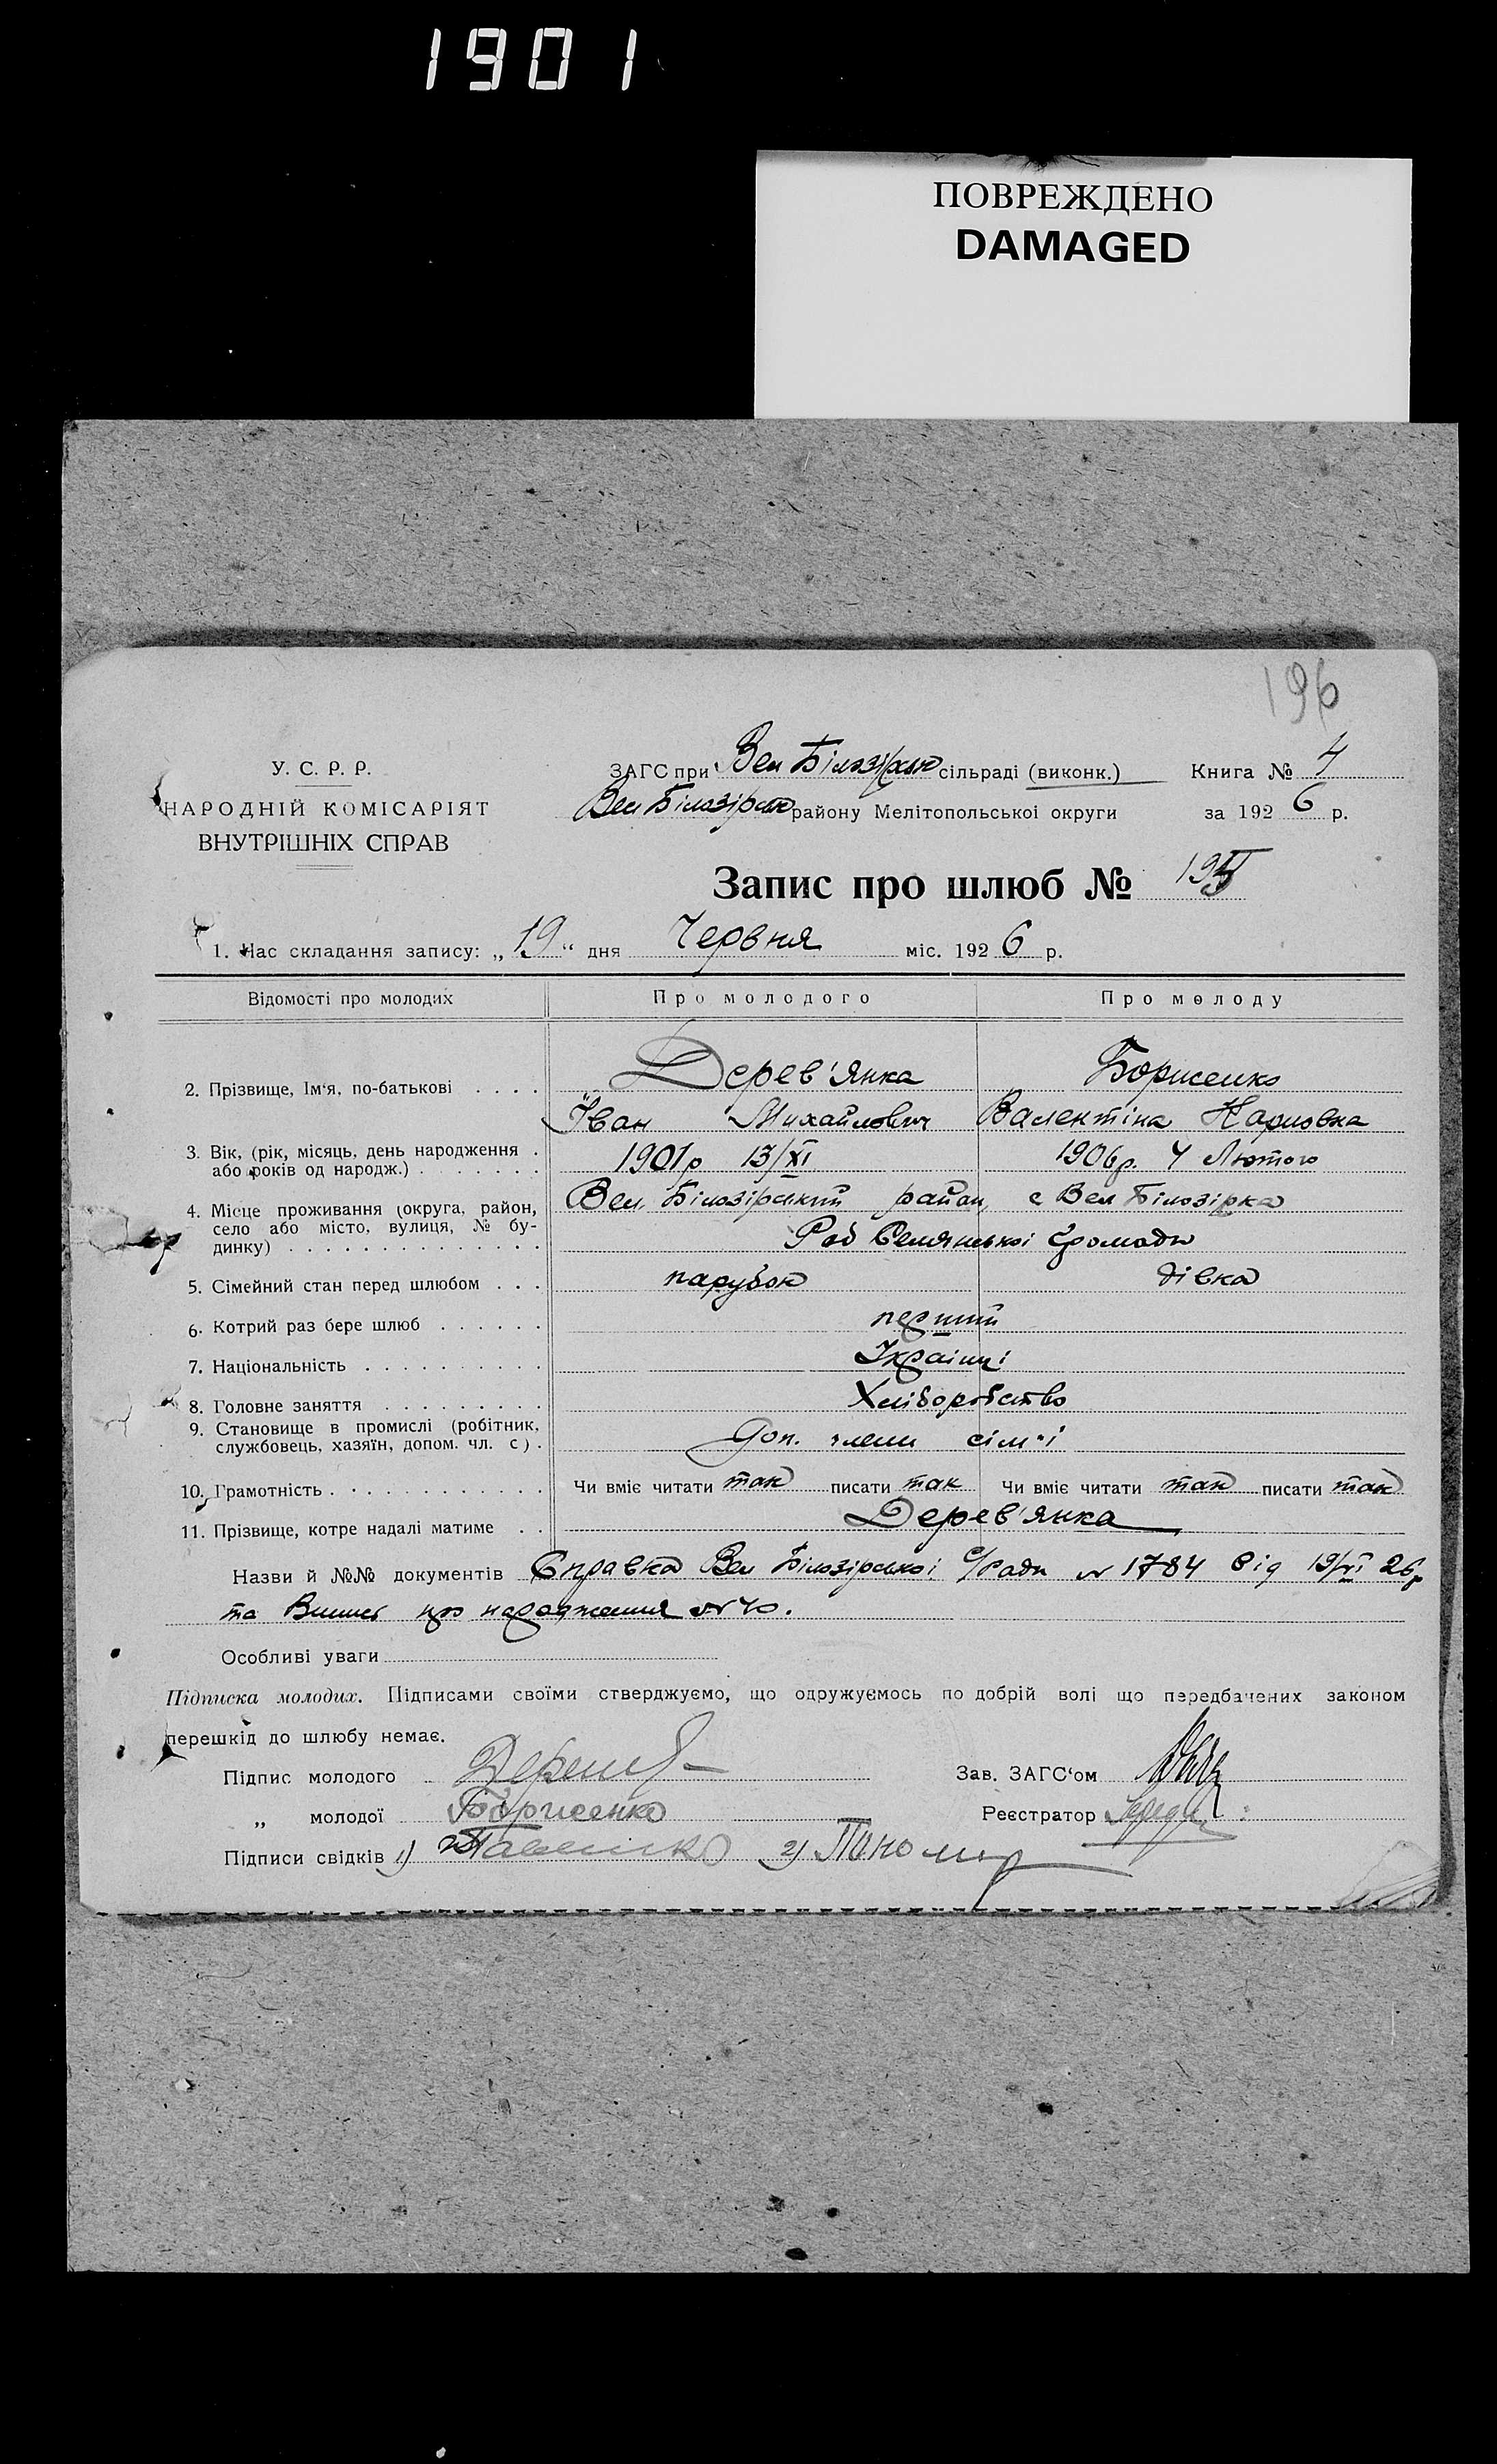 1901
ПОВРЕЖДЕНО
DAMAGED
196
У. С. Р. Р.
НАРОДНІЙ КОМІСАРІЯТ
ВНУТРІШНІХ СПРАВ
ЗАГС при Вел Білозірськ сільраді (виконк.) Книга № 4
Вел Білозірськ району Мелітопольської округи за 1926 р.
Запис про шлюб № 195
1. Час складання запису: „19“ дня Червня міс. 1926 р.
Відомості про молодих Про молодого Про молоду
2. Прізвище, Ім'я, по-батькові . . . . Дерев'янка Борисенко
Іван Михайлович Валентіна Карповна
3. Вік, (рік, місяць, день народження .
або років од народж.) . . . . . . . 1901р 13/XI 1906р. 4 Лютого
4. Місце проживання (округа, район,
село або місто, вулиця, № бу-
динку) . . . . . . . . . . . . . .
Вел. Білозірський район, с Вел Білозірка
Род Селянської громади
5. Сімейний стан перед шлюбом . . . парубок дівка
6. Котрий раз бере шлюб . . . . . . перший
7. Національність . . . . . . . . . . Українці
8. Головне заняття . . . . . . . . . Хліборобство
9. Становище в промислі (робітник,
службовець, хазяїн, допом. чл. с) . Доп. члени сім'ї
10. Грамотність . . . . . . . . . . . . Чи вміє читати так писати так Чи вміє читати так писати так
11. Прізвище, котре надалі матиме . . Дерев'янка
Назви й №№ документів Справка Вел Білозірської с/Ради № 1784 від 19/VI 26р
та Випис про народження № 40.
Особливі уваги
Підписка молодих. Підписами своїми стверджуємо, що одружуємось по добрій волі що передбачених законом
перешкід до шлюбу немає.
Підпис молодого Зав. ЗАГС'ом
„ молодої Борисенко Реєстратор
Підписи свідків 1) 2)